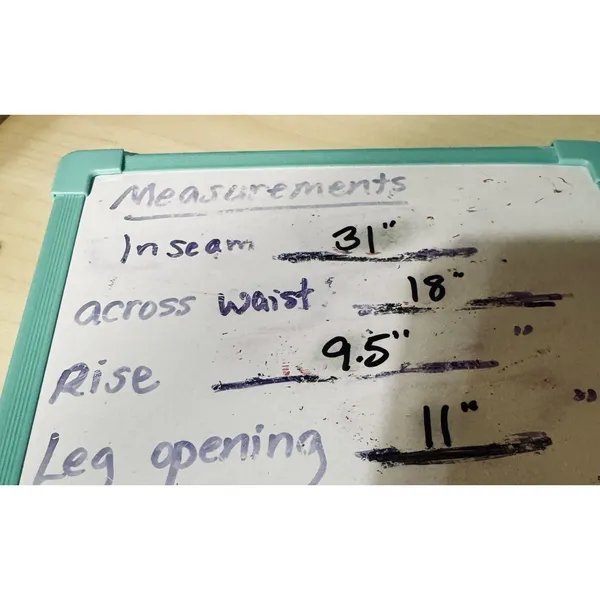 Measurements
Inseam 31"
across waist 18"
Rise 9.5" "
Leg opening 11" "